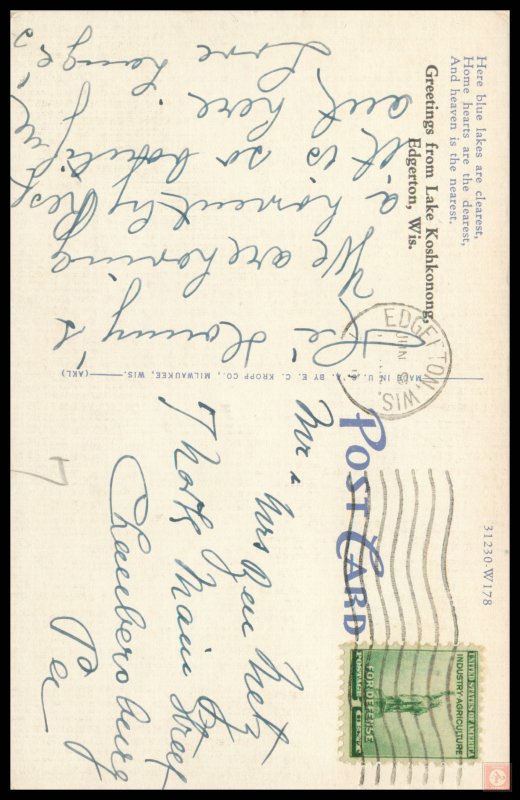 Here blue lakes are clearest,
Home hearts are the dearest,
And heaven is the nearest.
Greetings from Lake Koshkonong,
Edgerton, Wis.
We are having
a
it is so
out here
Love
MADE IN U. S. A. BY E. C. KROPP CO., MILWAUKEE, WIS.
(AKL)
POST CARD
31230-W178
EDGERTON, WIS.
JUN
Mr & Mrs Metz
North Main Street
Chambersburg
Pa
UNITED STATES OF AMERICA
INDUSTRY-AGRICULTURE
FOR DEFENSE
POSTAGE 1 CENT